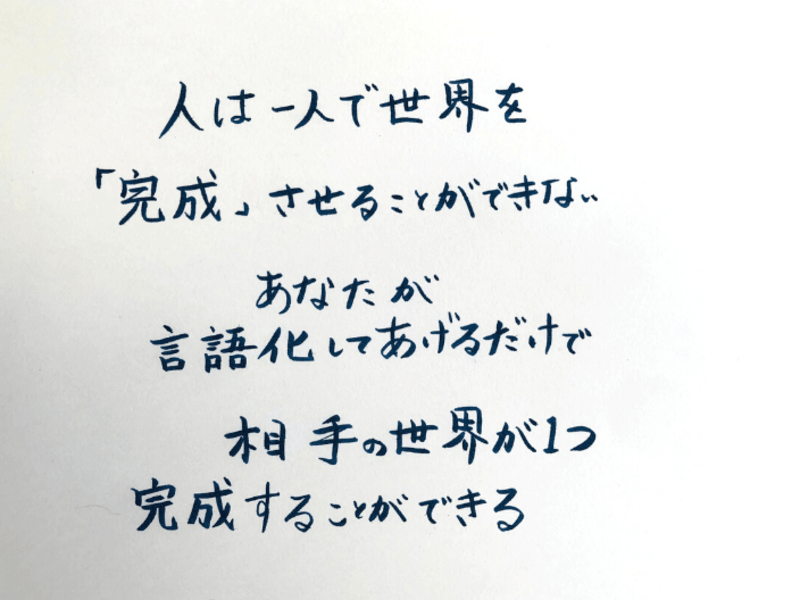 人は一人で世界を
「完成」させることができない
あなたが
言語化してあげるだけで
相手の世界が1つ
完成することができる